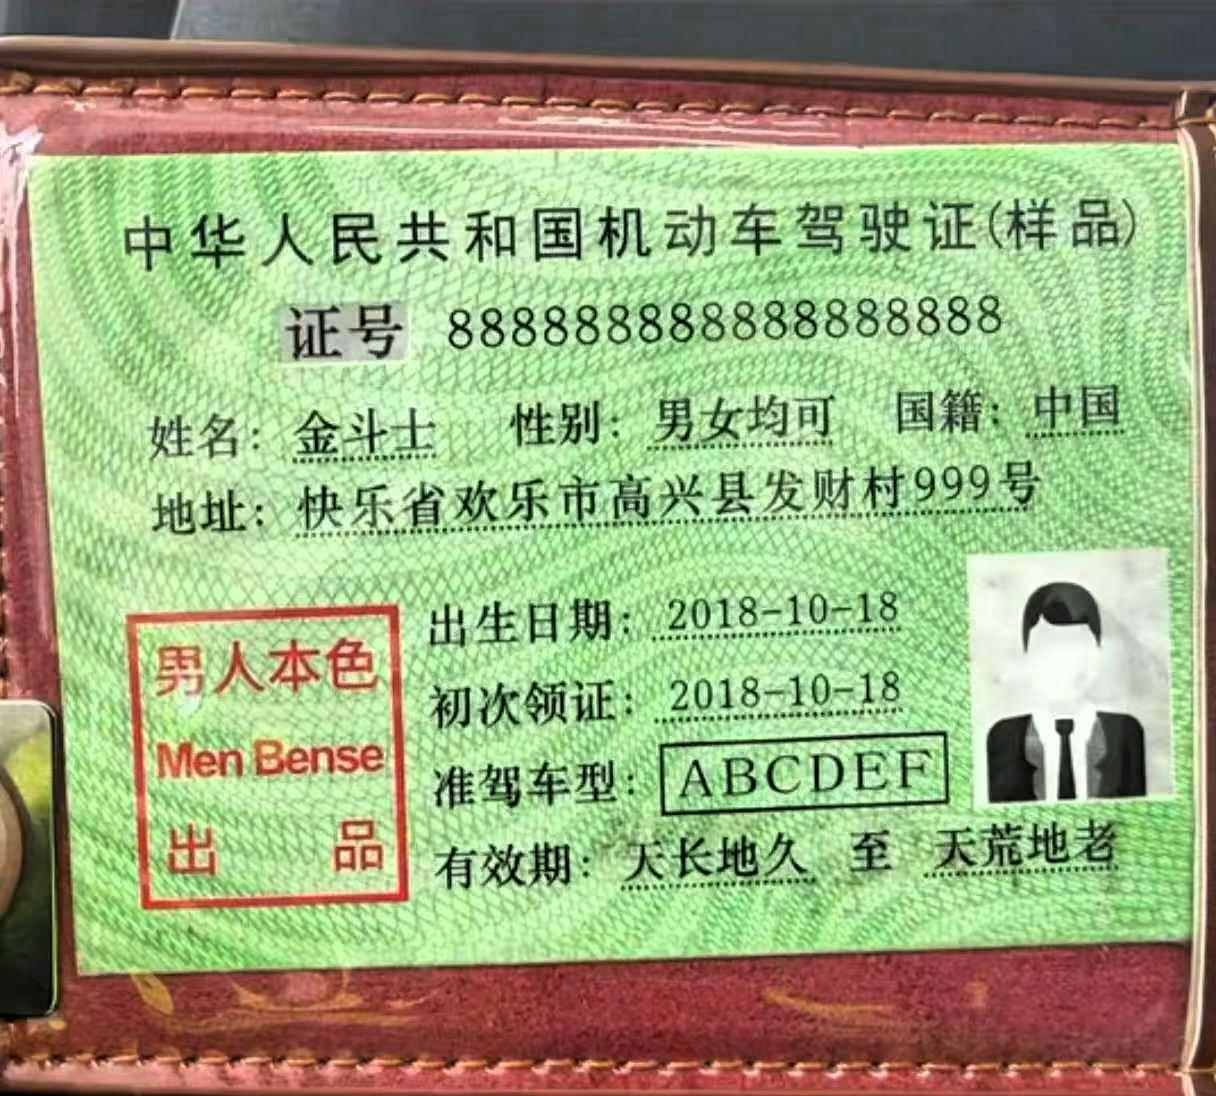 中华人民共和国机动车驾驶证(样品)
证号 888888888888888888
姓名: 金斗士 性别: 男女均可 国籍: 中国
地址: 快乐省欢乐市高兴县发财村999号
男人本色
Men Bense
出 品
出生日期: 2018-10-18
初次领证: 2018-10-18
准驾车型: ABCDEF
有效期: 天长地久 至 天荒地老